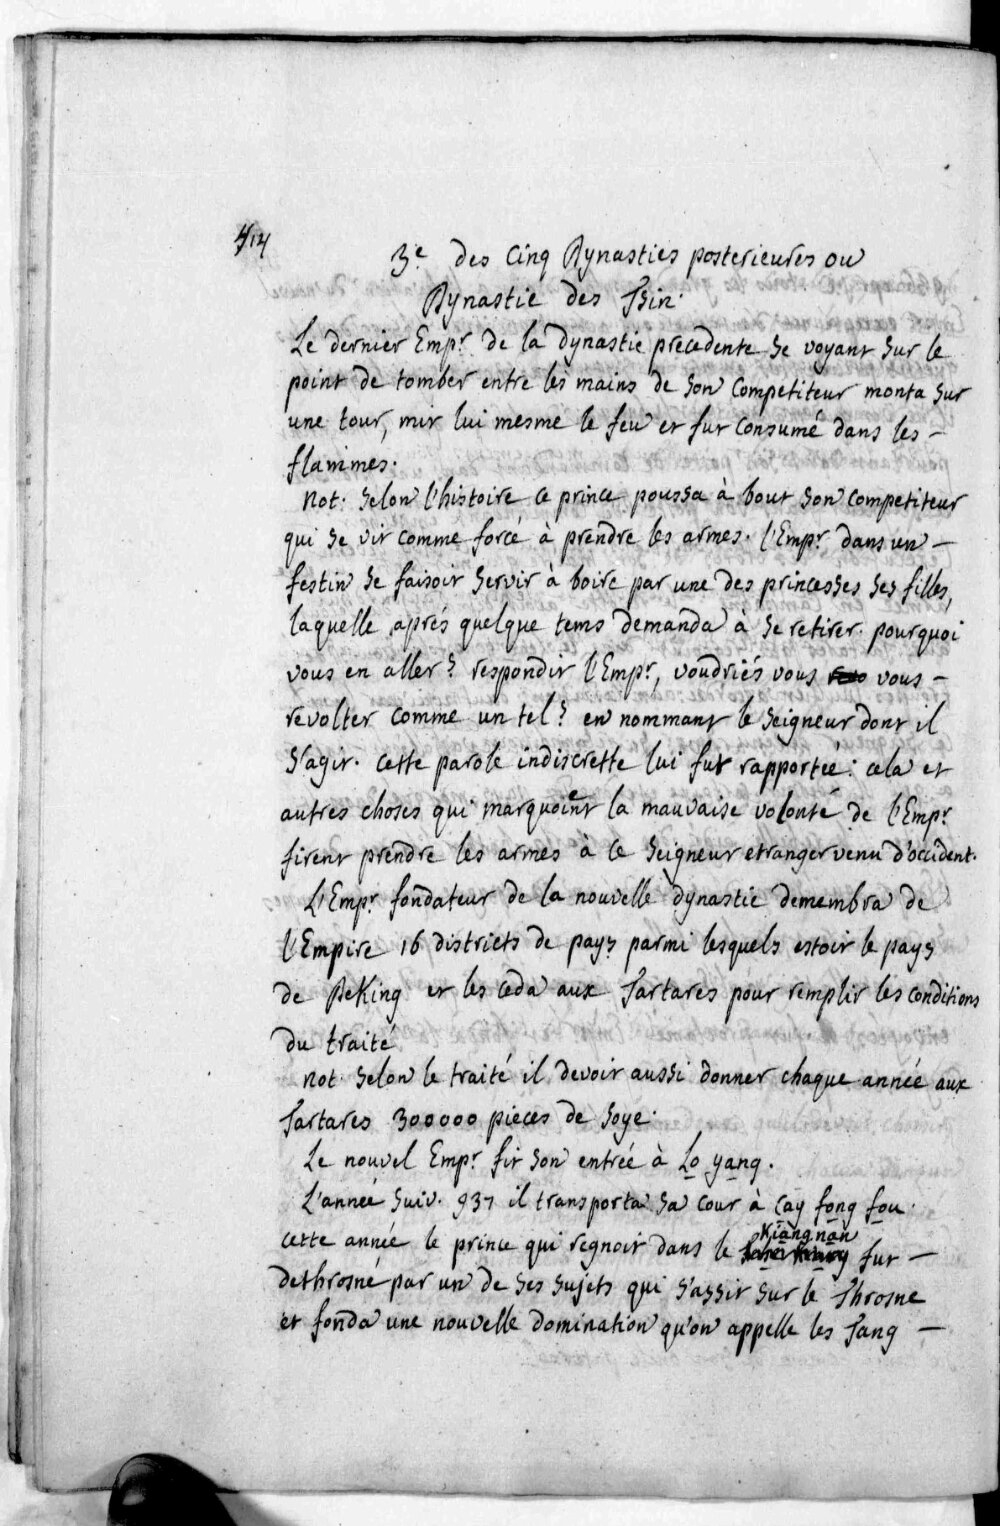 414
3.e des Cinq Dynasties posterieures ou
Dynastie des Tsin.
Le dernier Empr. de la dynastie precedente se voyant sur le
point de tomber entre les mains de son Competiteur monta sur
une tour, mit lui mesme le feu et fut Consumé dans les –
flammes.
not. selon l'histoire ce prince poussa à bout son competiteur
qui se vit comme forcé à prendre les armes. l'Empr. dans un –
festin se faisoit servir à boire par une des princesses ses filles,
laquelle aprés quelque tems demanda à se retirer. pourquoi
vous en aller? respondit l'Empr., voudriés vous vous –
revolter comme un tel? en nommant le seigneur dont il
s'agit. cette parole indiscrette lui fut rapportée: cela et
autres choses qui marquoient la mauvaise volonté de l'Empr.
firent prendre les armes à ce seigneur etranger venu d'occident.
L'Empr. fondateur de la nouvelle dynastie demembra de
l'Empire 16 districts de pays parmi lesquels estoit le pays
de PeKing et les ceda aux Tartares pour remplir les conditions
du traité
not. selon le traité il devoit aussi donner chaque année aux
Tartares 300000 pieces de soye.
Le nouvel Empr. fit son entrée à Lo yang.
L'année suiv. 937 il transporta sa cour à Cay fong fou.
cette année le prince qui regnoit dans le Kiang nan fut –
dethrosné par un de ses sujets qui s'assit sur le Throsne
et fonda une nouvelle domination qu'on appelle les Tang –